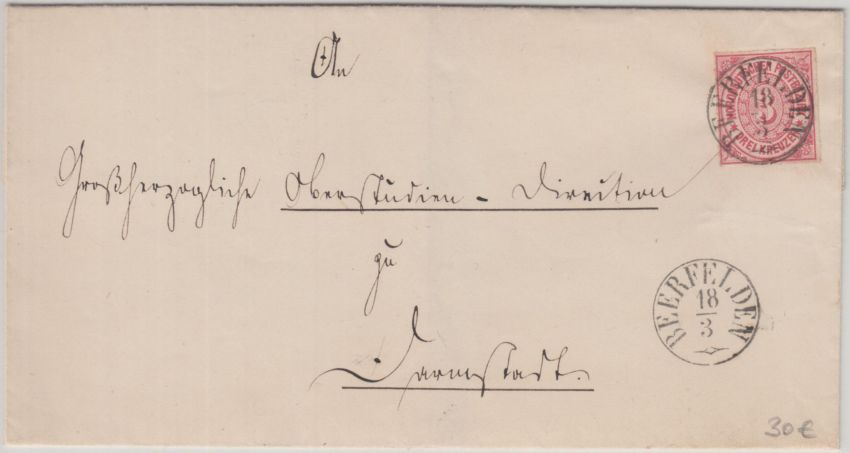 An
Großherzogliche Oberstudien-Direction
zu
Darmstadt.
NORDDEUTSCHER POSTBEZIRK
DREI KREUZER
3
BEERFELDEN
18
3
BEERFELDEN
18
3
30€